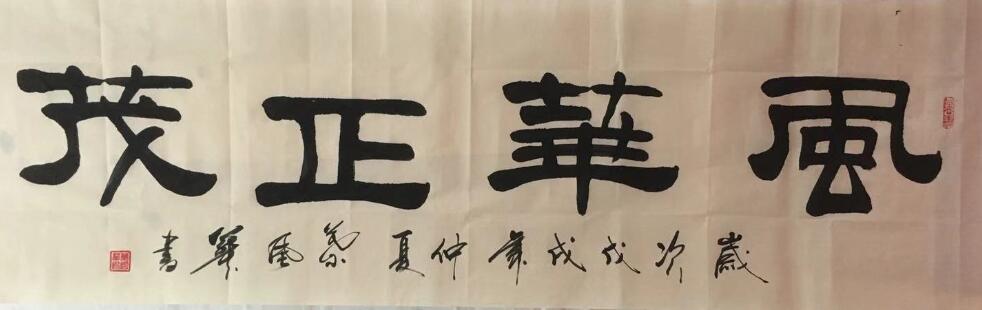 風華正茂
歲次戊戌年仲夏 風 書